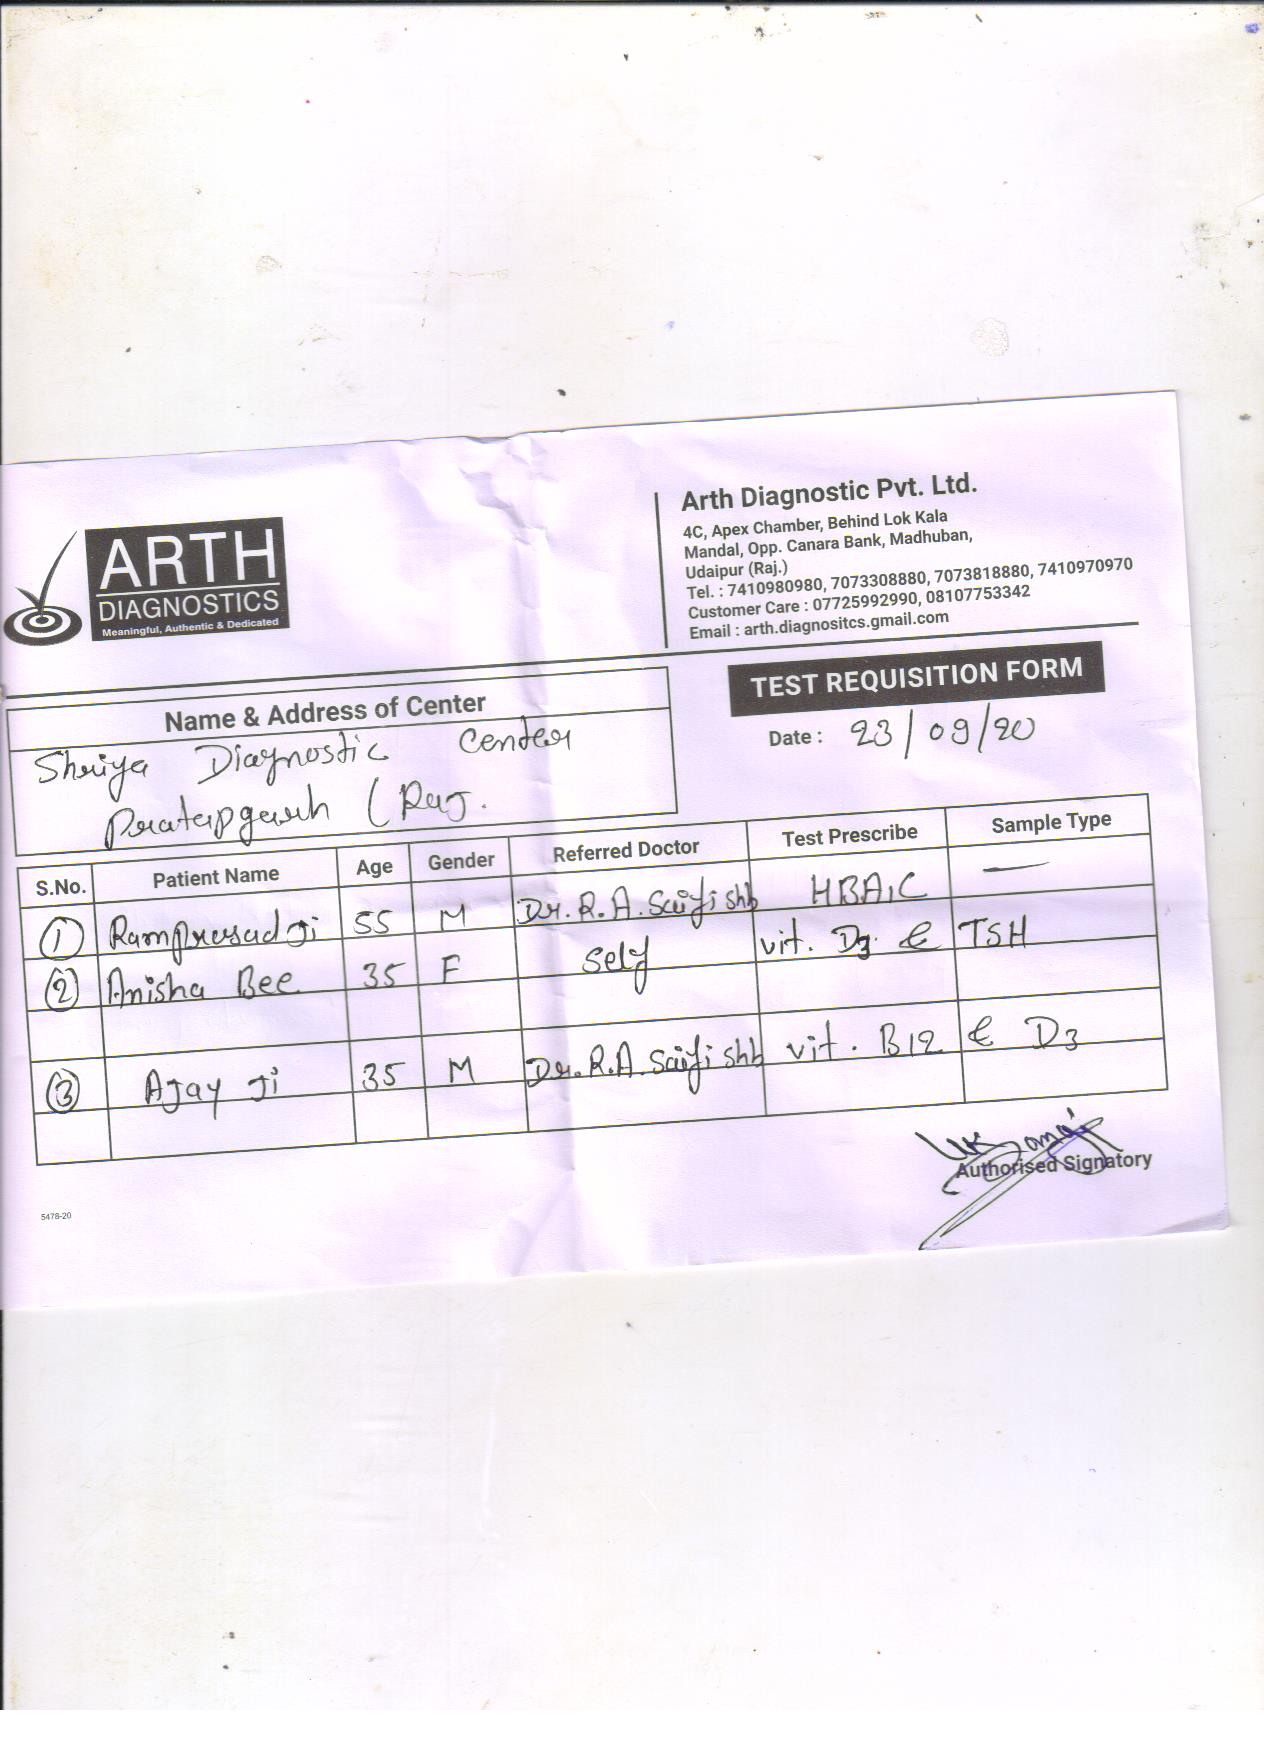 ARTH
DIAGNOSTICS
Meaningful, Authentic & Dedicated
Arth Diagnostic Pvt. Ltd.
4C, Apex Chamber, Behind Lok Kala
Mandal, Opp. Canara Bank, Madhuban,
Udaipur (Raj.)
Tel. : 7410980980, 7073308880, 7073818880, 7410970970
Customer Care : 07725992990, 08107753342
Email : arth.diagnositcs.gmail.com
TEST REQUISITION FORM
Date : 23/09/20
Name & Address of Center
Shriya Diagnostic Center
Pratapgarh (Raj.
S.No. Patient Name Age Gender Referred Doctor Test Prescribe Sample Type
1 Ramprasad Ji 55 M Dr. R.A. Saifi shb HBA1C —
2 Anisha Bee 35 F Self vit. D3 & TSH
3 Ajay Ji 35 M Dr. R.A. Saifi shb vit. B12 & D3
Authorised Signatory
5478-20